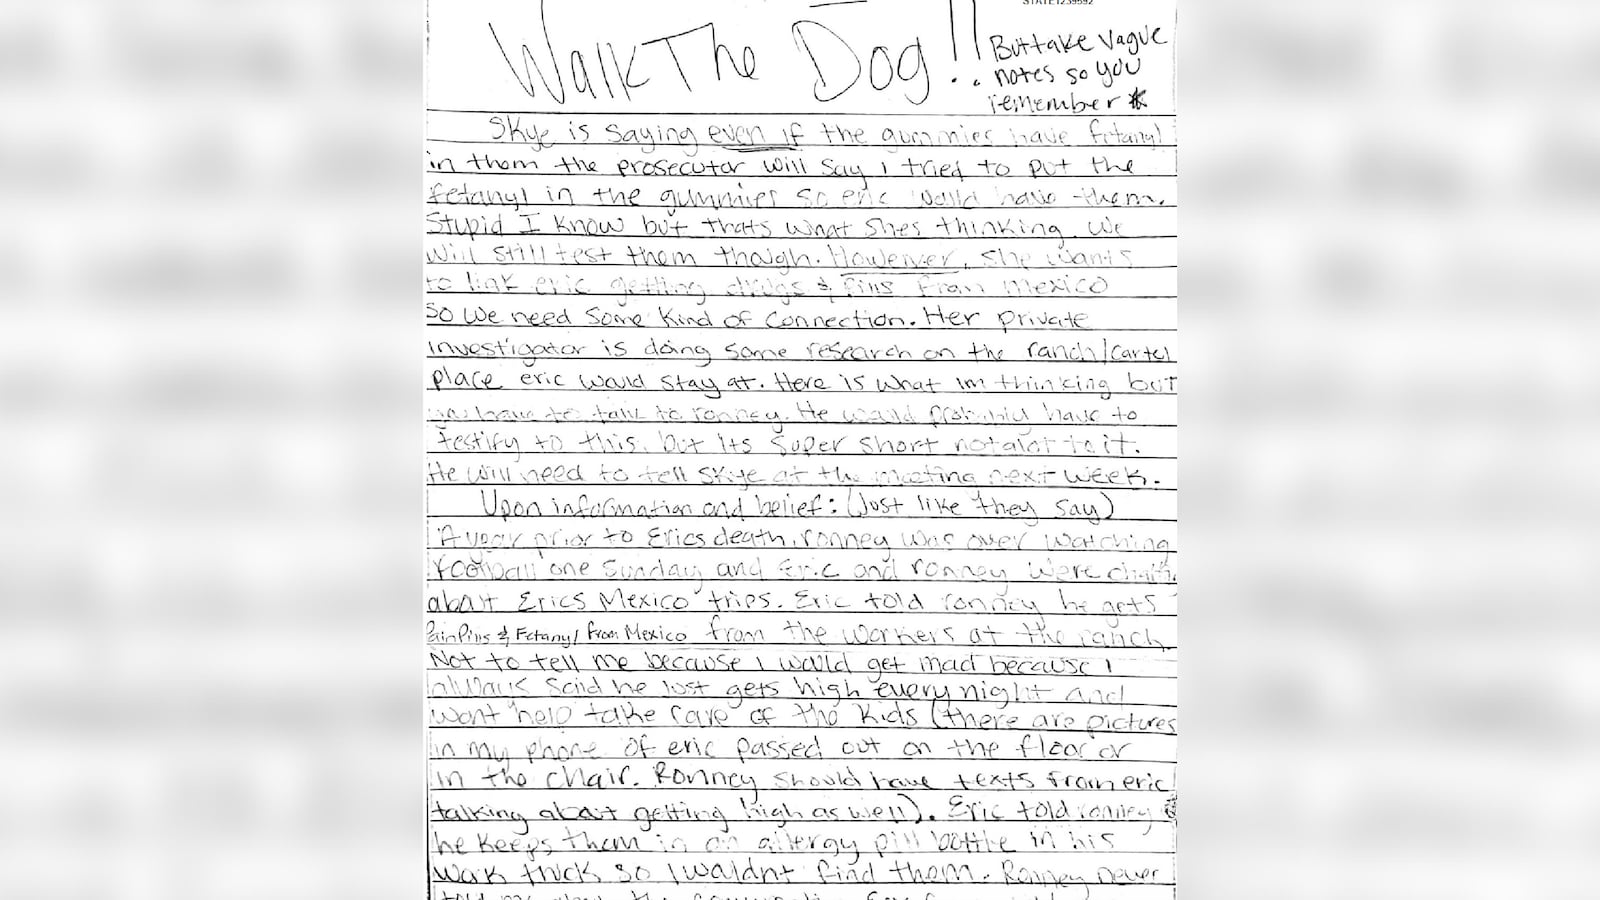 STATE1239592
Walk The Dog!!
But take vague
notes so you
remember *
Skye is saying even if the gummies have fetanyl
in them the prosecutor will say I tried to put the
fetanyl in the gummies so eric would have them.
Stupid I know but thats what shes thinking. We
will still test them though. However, she wants
to link eric getting drugs & pills from mexico
so we need some kind of connection. Her private
investigator is doing some research on the ranch/cartel
place eric would stay at. Here is what im thinking but
you have to talk to ronney. He would probably have to
testify to this, but its super short not alot to it.
He will need to tell skye at the meeting next week.
Upon information and belief: (Just like they say)
A year prior to Erics death, ronney was over watching
football one sunday and Eric and ronney were
abait Erics Mexico trips. Eric told ronney he gets
Pain Pills & Fetanyl from Mexico from the workers at the ranch.
Not to tell me because I would get mad because I
always said he just gets high every night and
wont help take care of the kids (there are pictures
in my phone of eric passed out on the floor or
in the chair. Ronney should have texts from eric
talking about getting high as well). Eric told ronney
he keeps them in an allergy pill bottle in his
so I wouldnt find them. Ronney never
told me about the